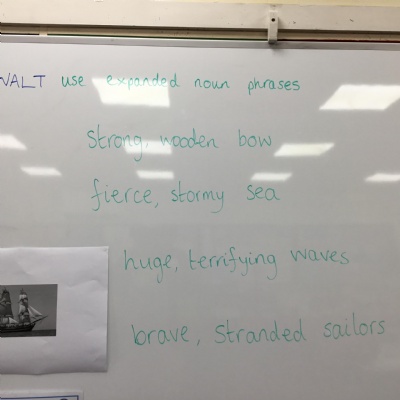 WALT use expanded noun phrases
strong, wooden bow
fierce, stormy sea
huge, terrifying waves
brave, stranded sailors